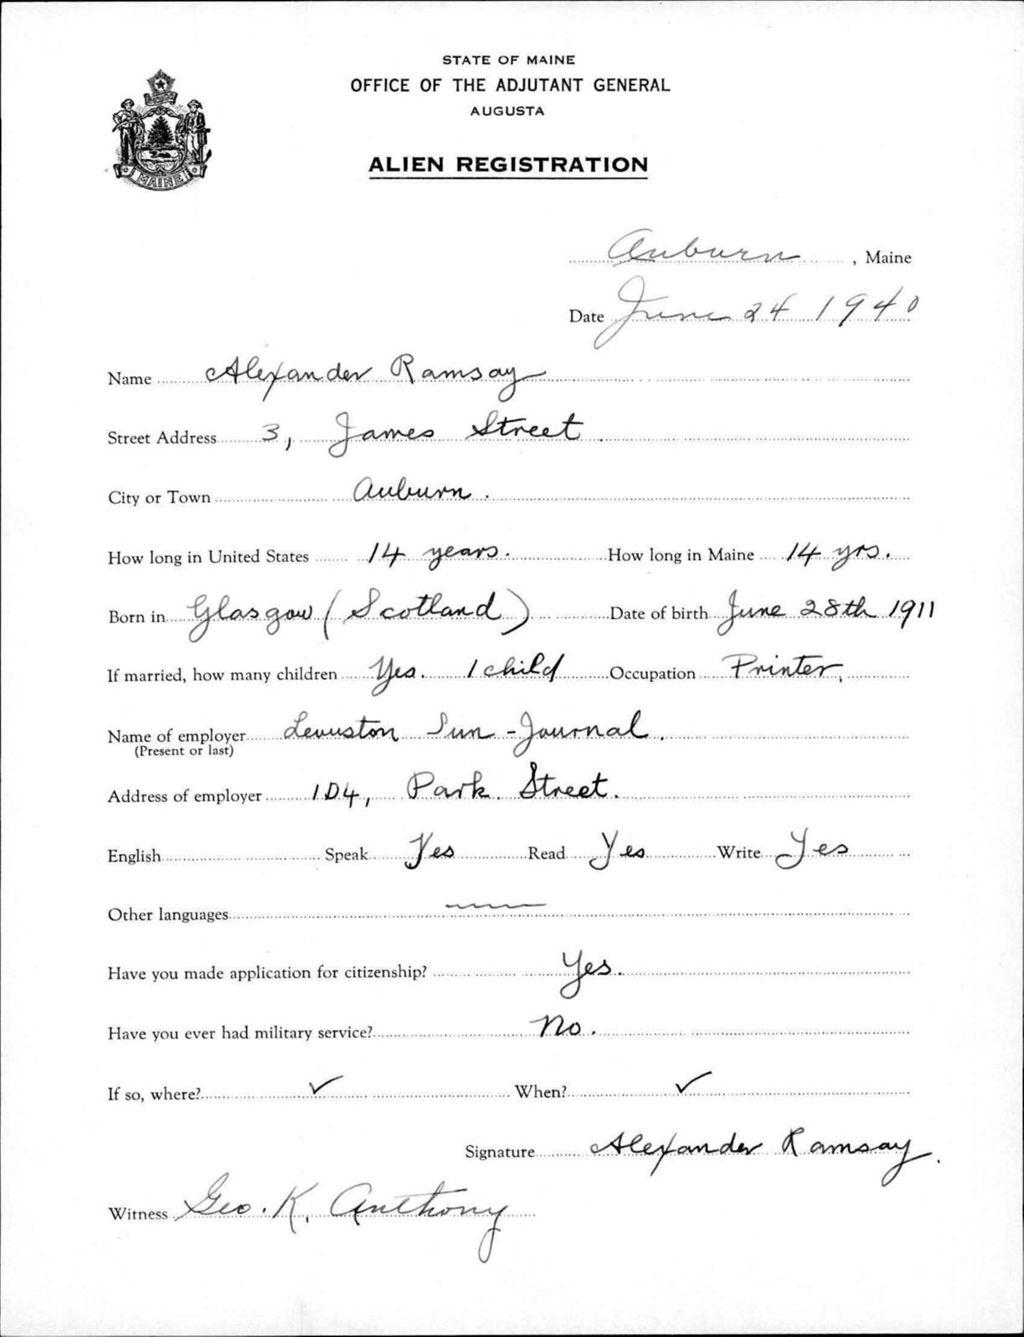 STATE OF MAINE
OFFICE OF THE ADJUTANT GENERAL
AUGUSTA
MAINE
ALIEN REGISTRATION
Auburn, Maine
Date June 24 1940
Name Alexander Ramsay
Street Address 3, James Street.
City or Town Auburn.
How long in United States 14 years. How long in Maine 14 yrs.
Born in Glasgow (Scotland) Date of birth June 28th 1911
If married, how many children Yes. 1 child Occupation Printer.
Name of employer Lewiston Sun-Journal.
(Present or last)
Address of employer 104, Park Street.
English Speak Yes Read Yes Write Yes
Other languages
Have you made application for citizenship? Yes.
Have you ever had military service? No.
If so, where? ✓ When? ✓
Signature Alexander Ramsay.
Witness Geo. K. Anthony